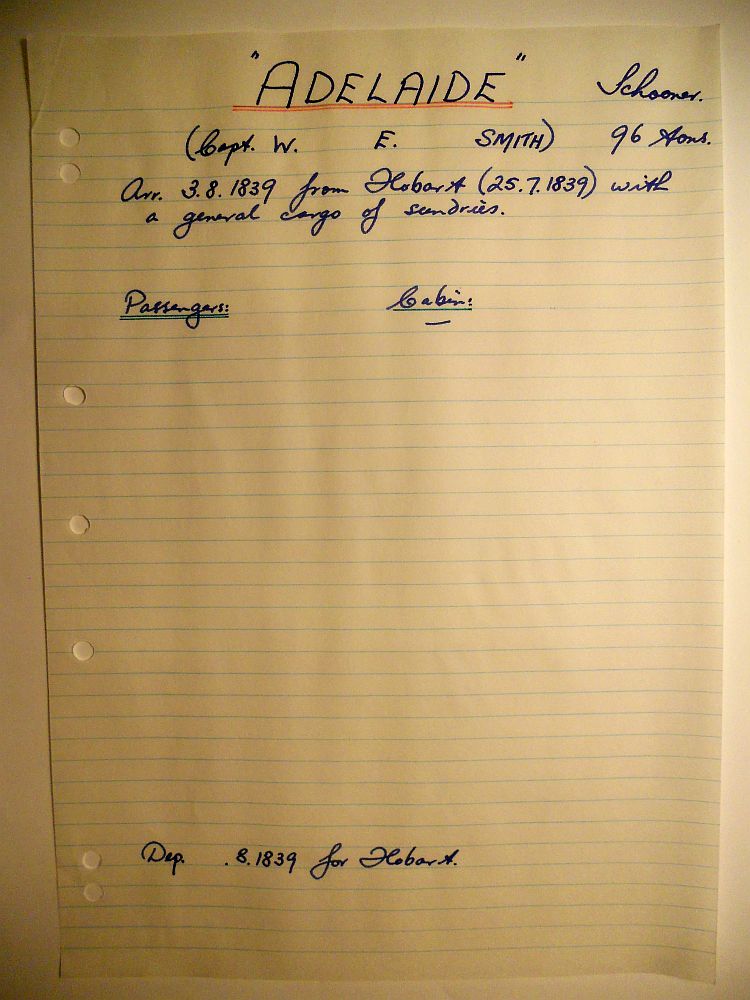 "ADELAIDE" Schooner.
(Capt. W. E. SMITH) 96 tons.
Arr. 3.8.1839 from Hobart (25.7.1839) with
a general cargo of sundries.
Passengers: Cabin:
—
Dep. .8.1839 for Hobart.